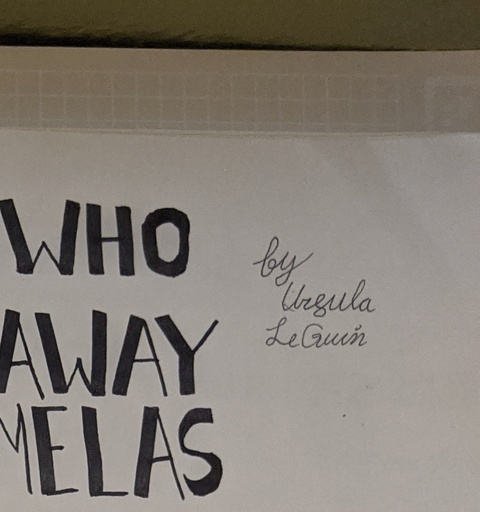 WHO
AWAY
MELAS
by
Ursula
LeGuin